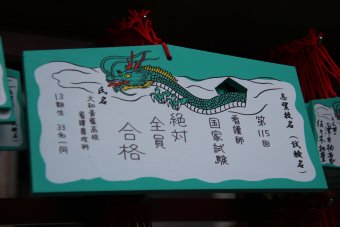 志望校名(試験名)
第115回
看護師
国家試験
絶対
全員
合格
氏名
大和青藍高校
看護専攻科
13期生 33名一同